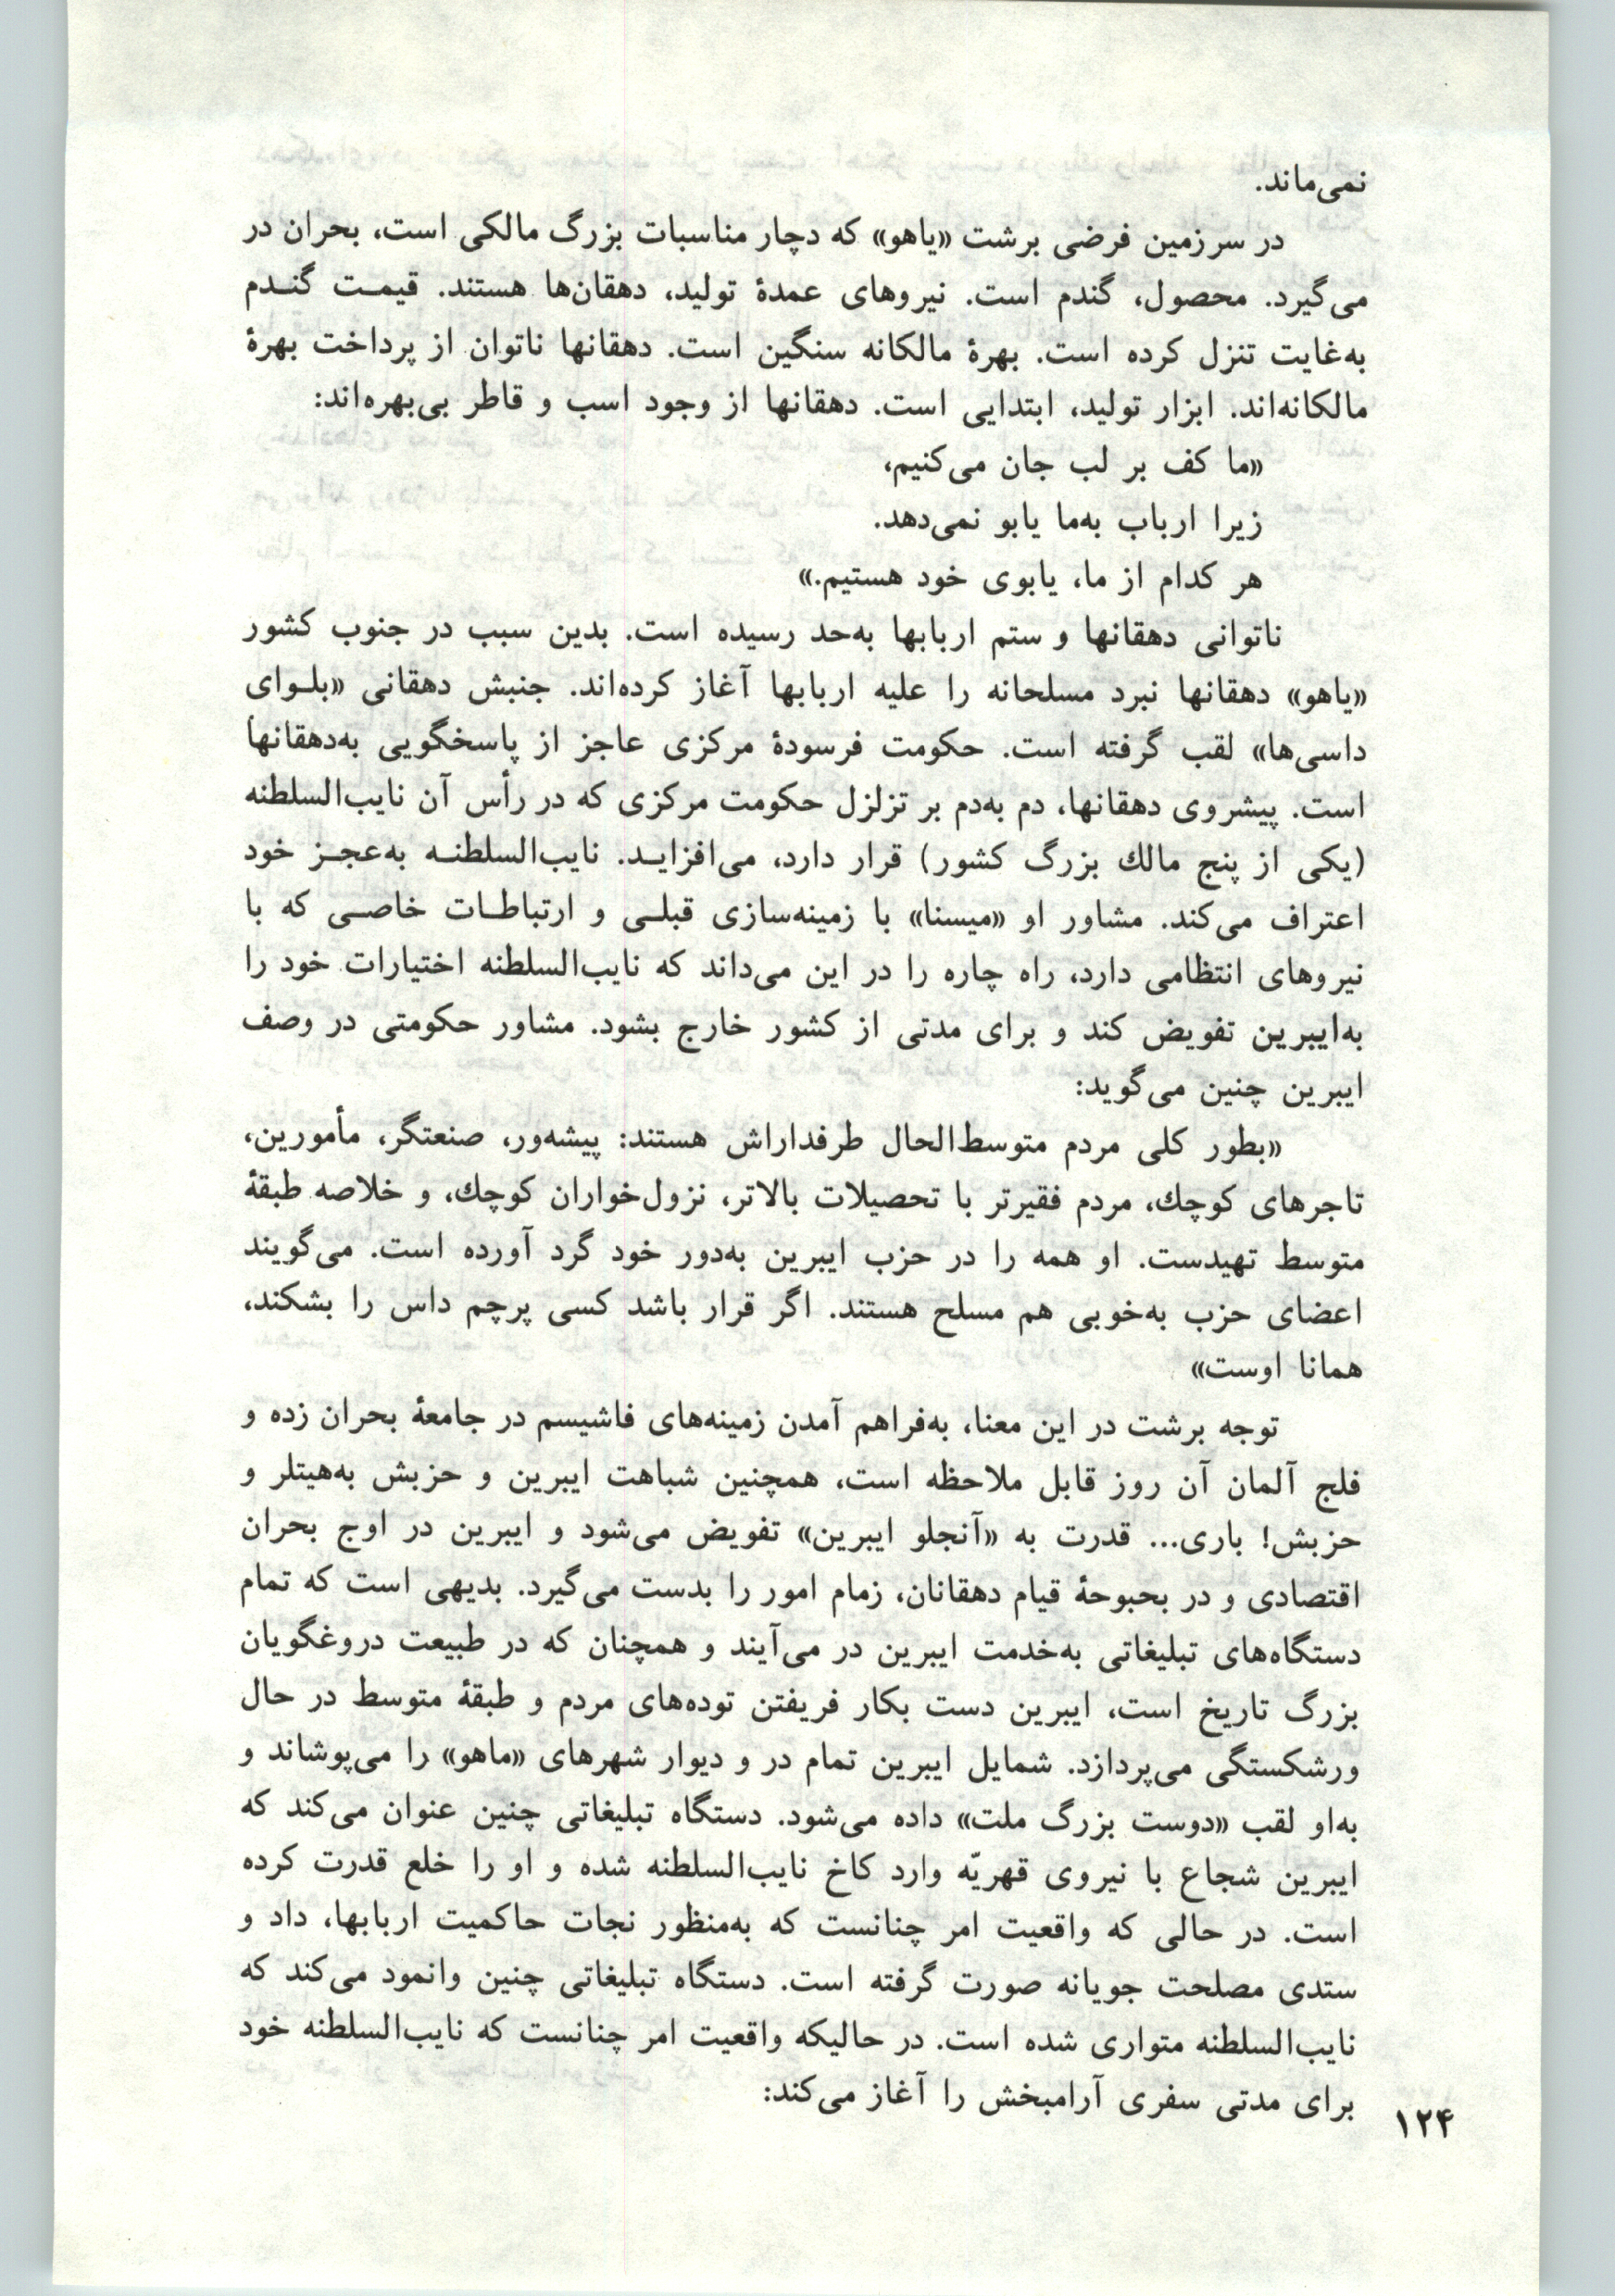 نمی‌ماند.
در سرزمین فرضی برشت «یاهو» که دچار مناسبات بزرگ مالکی است، بحران در
می‌گیرد. محصول، گندم است. نیروهای عمدهٔ تولید، دهقان‌ها هستند. قیمت گندم
به‌غایت تنزل کرده است. بهرهٔ مالکانه سنگین است. دهقانها ناتوان از پرداخت بهرهٔ
مالکانه‌اند. ابزار تولید، ابتدایی است. دهقانها از وجود اسب و قاطر بی‌بهره‌اند:
«ما کف بر لب جان می‌کنیم،
زیرا ارباب به‌ما یابو نمی‌دهد.
هر کدام از ما، یابوی خود هستیم.»
ناتوانی دهقانها و ستم اربابها به‌حد رسیده است. بدین سبب در جنوب کشور
«یاهو» دهقانها نبرد مسلحانه را علیه اربابها آغاز کرده‌اند. جنبش دهقانی «بلوای
داسی‌ها» لقب گرفته است. حکومت فرسودهٔ مرکزی عاجز از پاسخگویی به‌دهقانها
است. پیشروی دهقانها، دم به‌دم بر تزلزل حکومت مرکزی که در رأس آن نایب‌السلطنه
(یکی از پنج مالك بزرگ کشور) قرار دارد، می‌افزاید. نایب‌السلطنه به‌عجز خود
اعتراف می‌کند. مشاور او «میسنا» با زمینه‌سازی قبلی و ارتباطات خاصی که با
نیروهای انتظامی دارد، راه چاره را در این می‌داند که نایب‌السلطنه اختیارات خود را
به‌ایبرین تفویض کند و برای مدتی از کشور خارج بشود. مشاور حکومتی در وصف
ایبرین چنین می‌گوید:
«بطور کلی مردم متوسط‌الحال طرفداراش هستند: پیشه‌ور، صنعتگر، مأمورین،
تاجرهای کوچك، مردم فقیرتر با تحصیلات بالاتر، نزول‌خواران کوچك، و خلاصه طبقهٔ
متوسط تهیدست. او همه را در حزب ایبرین به‌دور خود گرد آورده است. می‌گویند
اعضای حزب به‌خوبی هم مسلح هستند. اگر قرار باشد کسی پرچم داس را بشکند،
همانا اوست»
توجه برشت در این معنا، به‌فراهم آمدن زمینه‌های فاشیسم در جامعهٔ بحران زده و
فلج آلمان آن روز قابل ملاحظه است، همچنین شباهت ایبرین و حزبش به‌هیتلر و
حزبش! باری... قدرت به «آنجلو ایبرین» تفویض می‌شود و ایبرین در اوج بحران
اقتصادی و در بحبوحهٔ قیام دهقانان، زمام امور را بدست می‌گیرد. بدیهی است که تمام
دستگاه‌های تبلیغاتی به‌خدمت ایبرین در می‌آیند و همچنان که در طبیعت دروغگویان
بزرگ تاریخ است، ایبرین دست بکار فریفتن توده‌های مردم و طبقهٔ متوسط در حال
ورشکستگی می‌پردازد. شمایل ایبرین تمام در و دیوار شهرهای «ماهو» را می‌پوشاند و
به‌او لقب «دوست بزرگ ملت» داده می‌شود. دستگاه تبلیغاتی چنین عنوان می‌کند که
ایبرین شجاع با نیروی قهریّه وارد کاخ نایب‌السلطنه شده و او را خلع قدرت کرده
است. در حالی که واقعیت امر چنانست که به‌منظور نجات حاکمیت اربابها، داد و
ستدی مصلحت جویانه صورت گرفته است. دستگاه تبلیغاتی چنین وانمود می‌کند که
نایب‌السلطنه متواری شده است. در حالیکه واقعیت امر چنانست که نایب‌السلطنه خود
برای مدتی سفری آرامبخش را آغاز می‌کند:
۱۲۴